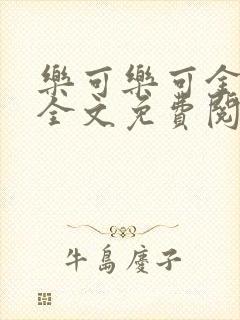 樂可樂可全
全文免費閱
牛島慶子